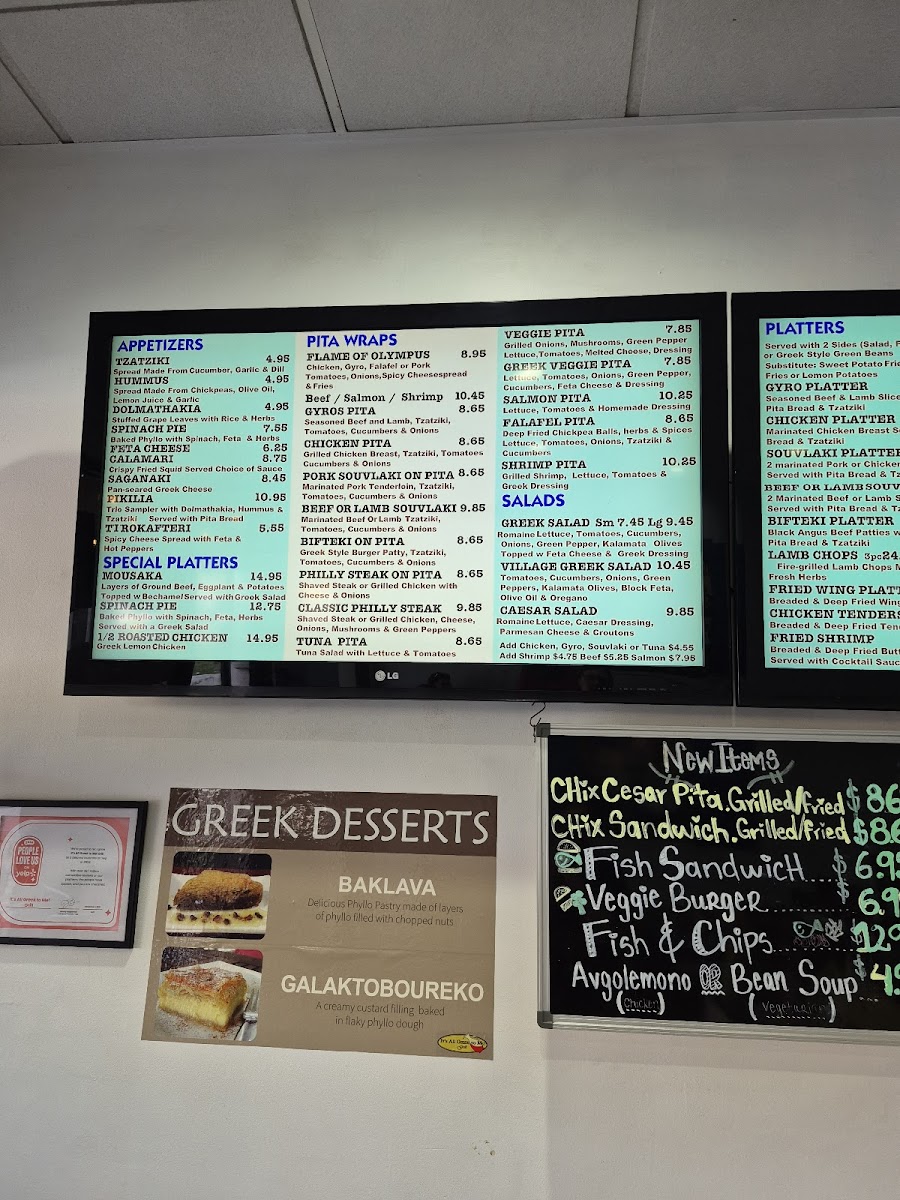 APPETIZERS
TZATZIKI 4.95
Spread Made From Cucumber, Garlic & Dill
HUMMUS 4.95
Spread Made From Chickpeas, Olive Oil,
Lemon Juice & Garlic
DOLMATHAKIA 4.95
Stuffed Grape Leaves with Rice & Herbs
SPINACH PIE 7.55
Baked Phyllo with Spinach, Feta & Herbs
FETA CHEESE 6.25
CALAMARI 8.75
Crispy Fried Squid Served Choice of Sauce
SAGANAKI 8.45
Pan-seared Greek Cheese
PIKILIA 10.95
Trio Sampler with Dolmathakia, Hummus &
Tzatziki Served with Pita Bread
TIROKAFTERI 5.55
Spicy Cheese Spread with Feta &
Hot Peppers
SPECIAL PLATTERS
MOUSAKA 14.95
Layers of Ground Beef, Eggplant & Potatoes
Topped w Bechamel Served with Greek Salad
SPINACH PIE 12.75
Baked Phyllo with Spinach, Feta, Herbs
Served with a Greek Salad
1/2 ROASTED CHICKEN 14.95
Greek Lemon Chicken
PITA WRAPS
FLAME OF OLYMPUS 8.95
Chicken, Gyro, Falafel or Pork
Tomatoes, Onions,Spicy Cheesespread
& Fries
Beef / Salmon / Shrimp 10.45
GYROS PITA 8.65
Seasoned Beef and Lamb, Tzatziki,
Tomatoes, Cucumbers & Onions
CHICKEN PITA 8.65
Grilled Chicken Breast, Tzatziki, Tomatoes
Cucumbers & Onions
PORK SOUVLAKI ON PITA 8.65
Marinated Pork Tenderloin, Tzatziki,
Tomatoes, Cucumbers & Onions
BEEF OR LAMB SOUVLAKI 9.85
Marinated Beef Or Lamb Tzatziki,
Tomatoes, Cucumbers & Onions
BIFTEKI ON PITA 8.65
Greek Style Burger Patty, Tzatziki,
Tomatoes, Cucumbers & Onions
PHILLY STEAK ON PITA 8.65
Shaved Steak or Grilled Chicken with
Cheese & Onions
CLASSIC PHILLY STEAK 9.85
Shaved Steak or Grilled Chicken, Cheese,
Onions, Mushrooms & Green Peppers
TUNA PITA 8.65
Tuna Salad with Lettuce & Tomatoes
VEGGIE PITA 7.85
Grilled Onions, Mushrooms, Green Pepper
Lettuce,Tomatoes, Melted Cheese, Dressing
GREEK VEGGIE PITA 7.85
Lettuce, Tomatoes, Onions, Green Pepper,
Cucumbers, Feta Cheese & Dressing
SALMON PITA 10.25
Lettuce, Tomatoes & Homemade Dressing
FALAFEL PITA 8.65
Deep Fried Chickpea Balls, herbs & Spices
Lettuce, Tomatoes, Onions, Tzatziki &
Cucumbers
SHRIMP PITA 10.25
Grilled Shrimp, Lettuce, Tomatoes &
Greek Dressing
SALADS
GREEK SALAD Sm 7.45 Lg 9.45
Romaine Lettuce, Tomatoes, Cucumbers,
Onions, Green Pepper, Kalamata Olives
Topped w Feta Cheese & Greek Dressing
VILLAGE GREEK SALAD 10.45
Tomatoes, Cucumbers, Onions, Green
Peppers, Kalamata Olives, Block Feta,
Olive Oil & Oregano
CAESAR SALAD 9.85
Romaine Lettuce, Caesar Dressing,
Parmesan Cheese & Croutons
Add Chicken, Gyro, Souvlaki or Tuna $4.55
Add Shrimp $4.75 Beef $5.25 Salmon $7.95
LG
PLATTERS
Served with 2 Sides (Salad,
or Greek Style Green Beans
Substitute: Sweet Potato
Fries or Lemon Potatoes
GYRO PLATTER
Seasoned Beef & Lamb
Pita Bread & Tzatziki
CHICKEN PLATTER
Marinated Chicken Breast
Bread & Tzatziki
SOUVLAKI PLATTER
2 marinated Pork or Chicken
Served with Pita Bread &
BEEF OR LAMB
2 Marinated Beef or Lamb
Served with Pita Bread &
BIFTEKI PLATTER
Black Angus Beef Patties
Pita Bread & Tzatziki
LAMB CHOPS 3pc
Fire-grilled Lamb Chops
Fresh Herbs
FRIED WING
Breaded & Deep Fried
CHICKEN TENDERS
Breaded & Deep Fried
FRIED SHRIMP
Breaded & Deep Fried
Served with Cocktail
New Items
CHix Cesar Pita.Grilled/Fried $8
CHix Sandwich.Grilled/Fried $8
Fish Sandwich $6.9
Veggie Burger $6.9
Fish & Chips 12
Avgolemono OR Bean Soup $4
(Chicken) (Vegetarian)
GREEK DESSERTS
BAKLAVA
Delicious Phyllo Pastry made of layers
of phyllo filled with chopped nuts
GALAKTOBOUREKO
A creamy custard filling baked
in flaky phyllo dough
PEOPLE
LOVE US
on
yelp